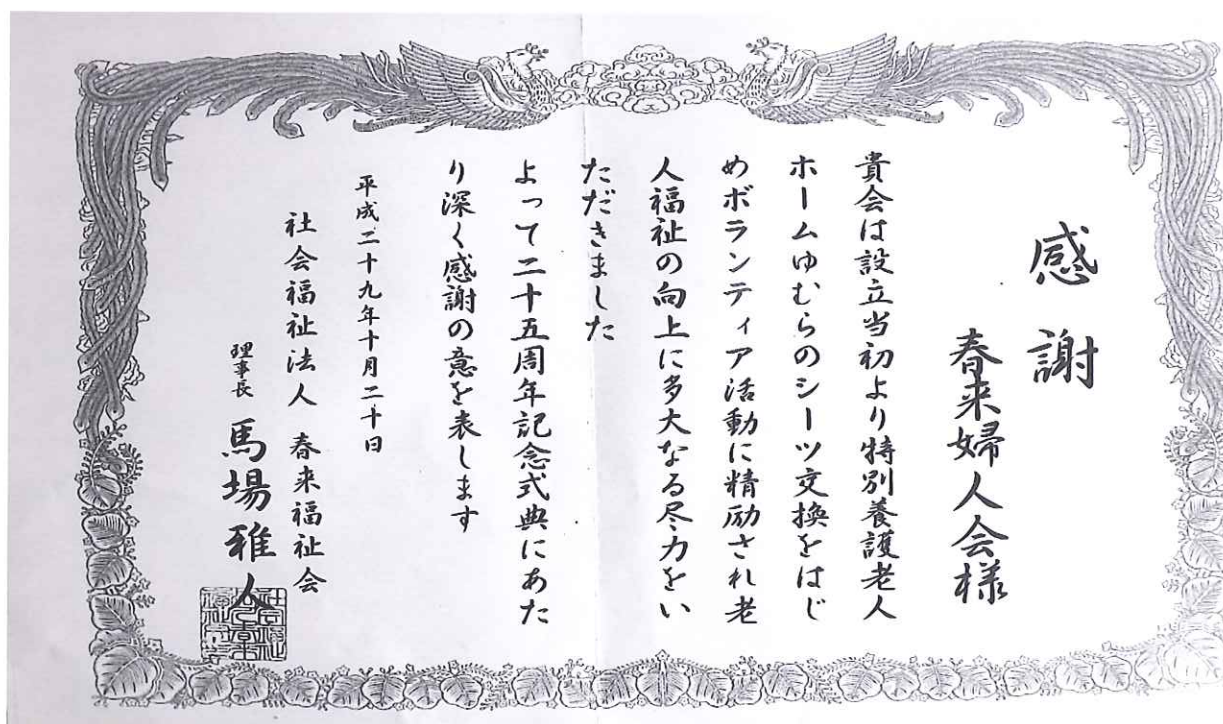 感謝
春来婦人会様
貴会は設立当初より特別養護老人
ホームゆむらのシーツ交換をはじ
めボランティア活動に精励され老
人福祉の向上に多大なる尽力をい
ただきました
よって二十五周年記念式典にあた
り深く感謝の意を表します
平成二十九年十月二十日
社会福祉法人 春来福祉会
理事長 馬場雅人